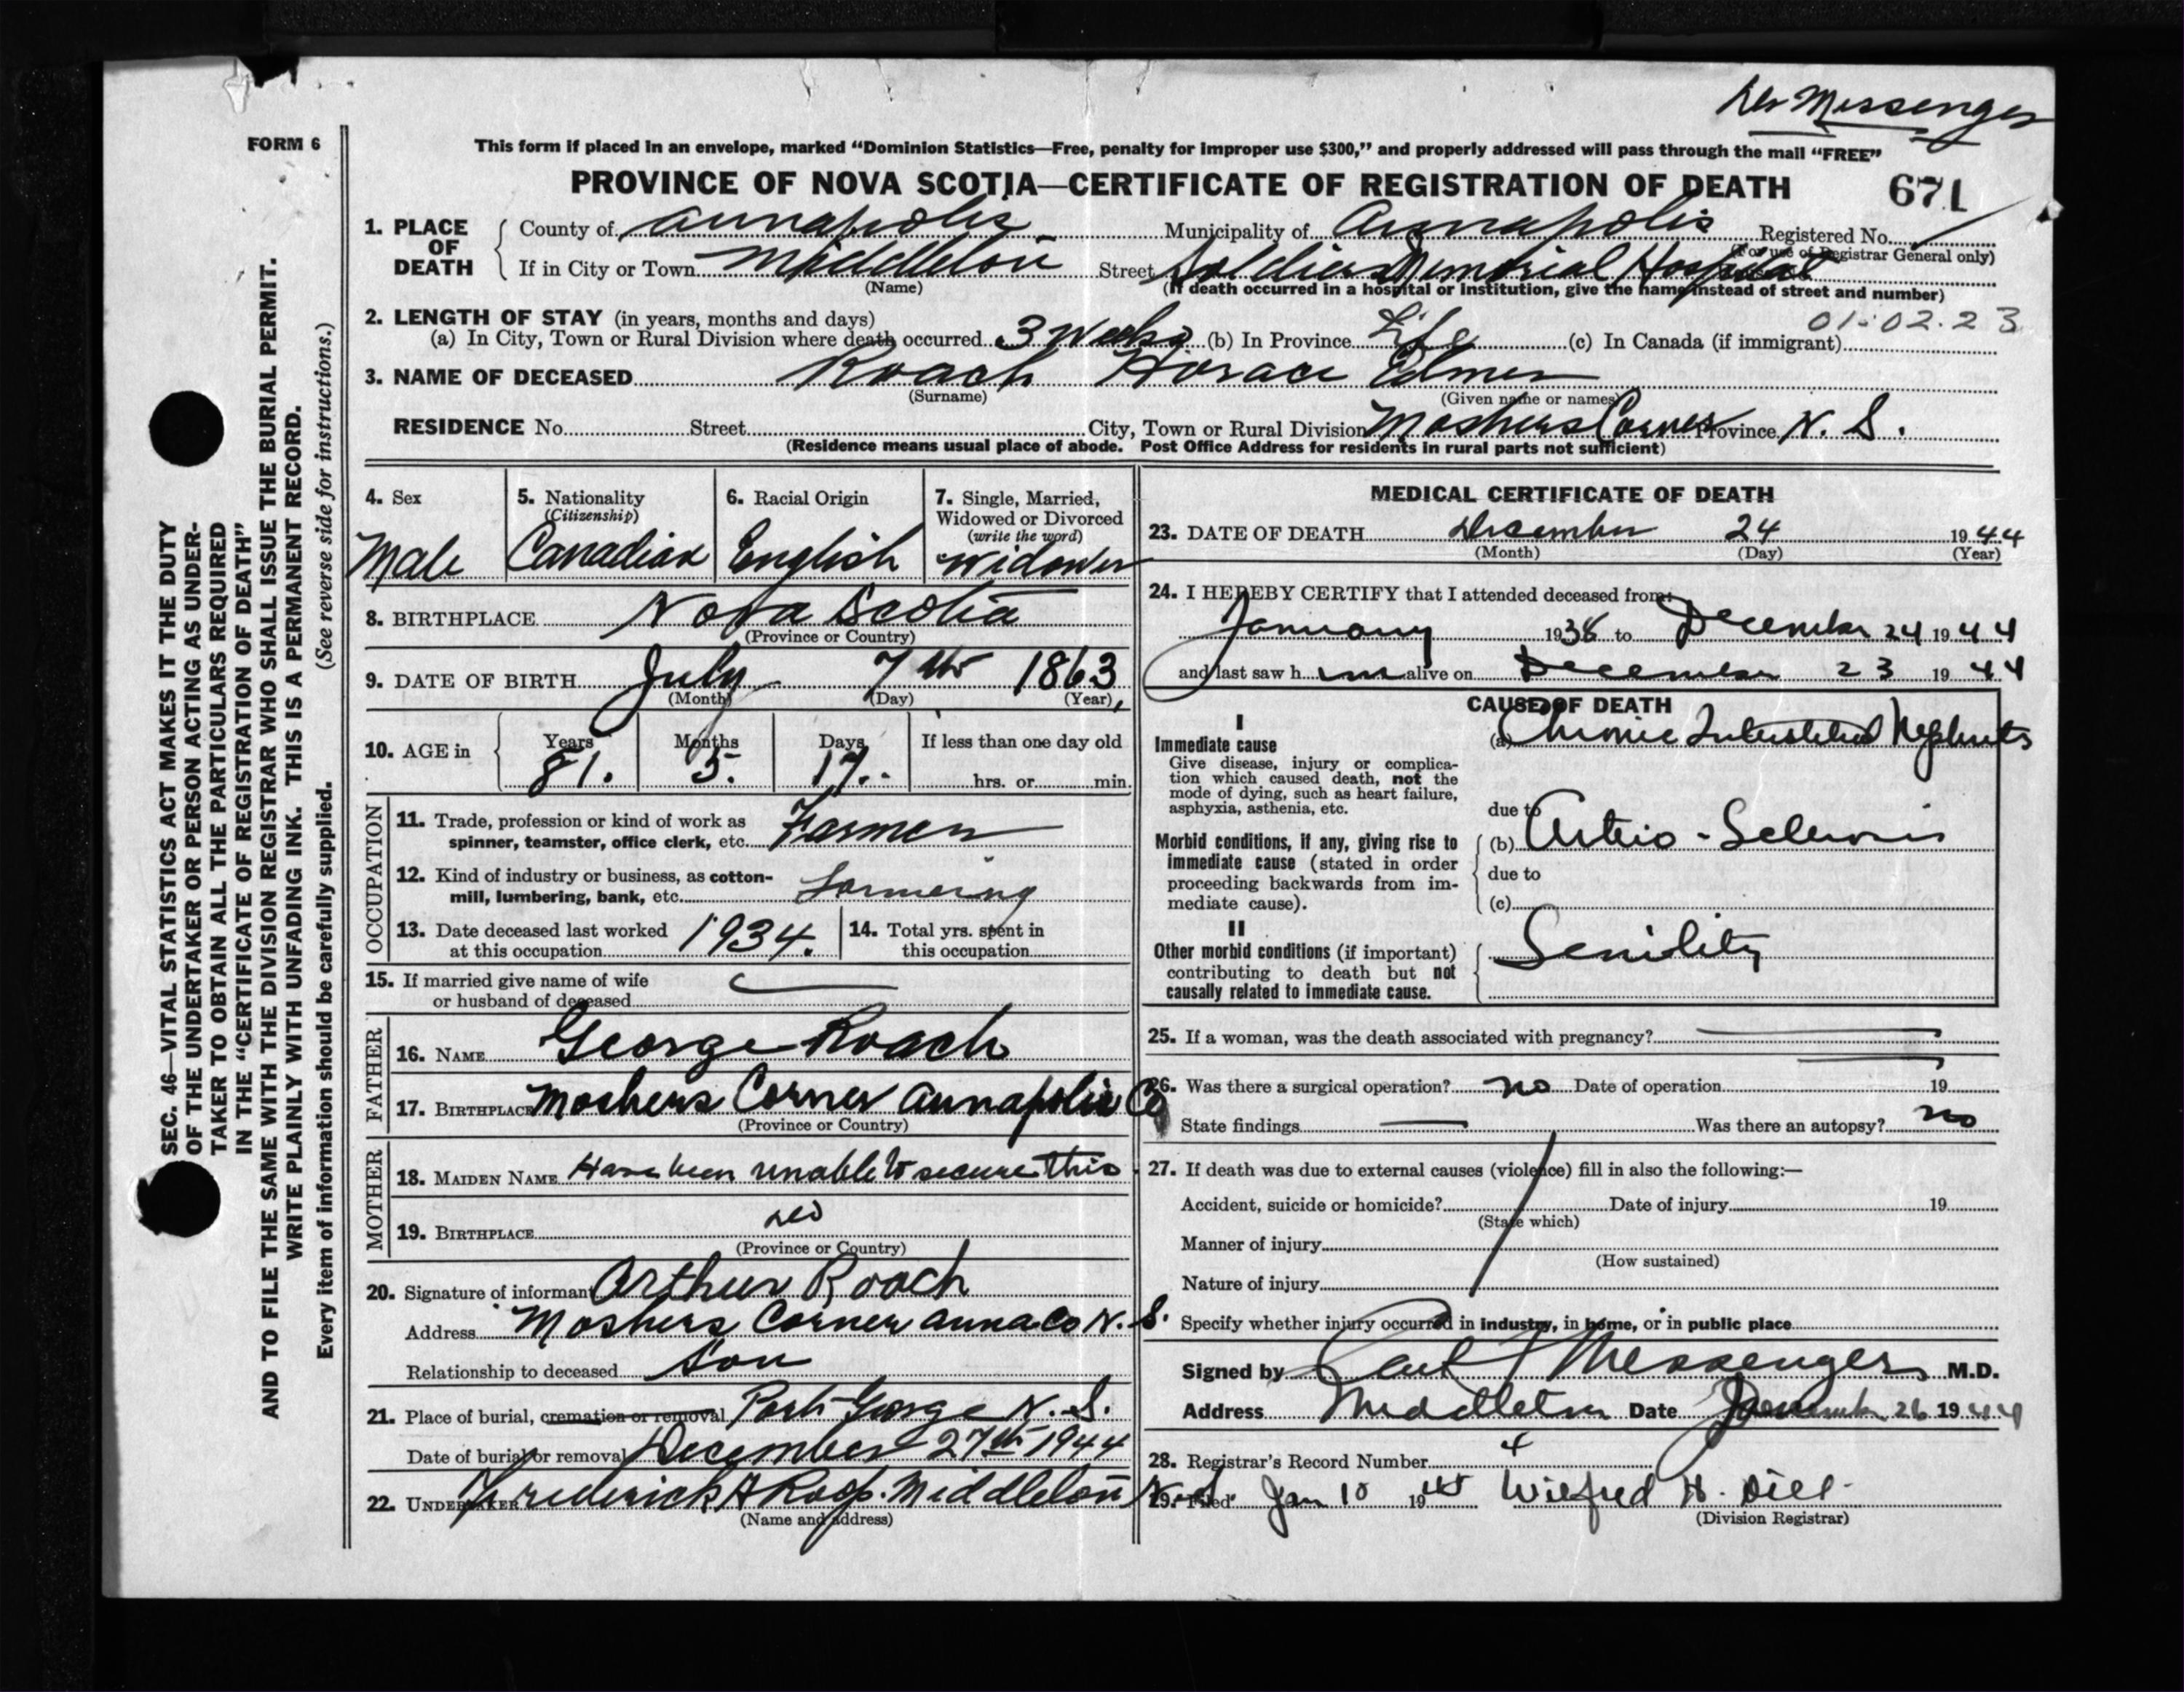 Dr Messenger
FORM 6
This form if placed in an envelope, marked “Dominion Statistics—Free, penalty for improper use $300,” and properly addressed will pass through the mail “FREE”
PROVINCE OF NOVA SCOTIA—CERTIFICATE OF REGISTRATION OF DEATH 671
1. PLACE OF DEATH
County of Annapolis Municipality of Annapolis Registered No.
(For use of Registrar General only)
If in City or Town Middleton Street Soldiers Memorial Hospital
(Name) (If death occurred in a hospital or institution, give the name instead of street and number)
2. LENGTH OF STAY (in years, months and days) 01-02.23
(a) In City, Town or Rural Division where death occurred 3 weeks (b) In Province Life (c) In Canada (if immigrant)
3. NAME OF DECEASED Roach Horace Elmer
(Surname) (Given name or names)
RESIDENCE No. Street City, Town or Rural Division Moshers Corner Province N. S.
(Residence means usual place of abode. Post Office Address for residents in rural parts not sufficient)
4. Sex
Male
5. Nationality
(Citizenship)
Canadian
6. Racial Origin
English
7. Single, Married,
Widowed or Divorced
(write the word)
Widower
8. BIRTHPLACE Nova Scotia
(Province or Country)
9. DATE OF BIRTH July 7th 1863
(Month) (Day) (Year)
10. AGE in Years Months Days If less than one day old
81. 5. 17. hrs. or min.
OCCUPATION
11. Trade, profession or kind of work as
spinner, teamster, office clerk, etc. Farmer
12. Kind of industry or business, as cotton-
mill, lumbering, bank, etc. Farmering
13. Date deceased last worked
at this occupation 1934.
14. Total yrs. spent in
this occupation
15. If married give name of wife
or husband of deceased
FATHER
16. NAME George Roach
17. BIRTHPLACE Moshers Corner Annapolis Co
(Province or Country)
MOTHER
18. MAIDEN NAME Have been unable to secure this
19. BIRTHPLACE
(Province or Country)
20. Signature of informant Arthur Roach
Address Moshers Corner Anna Co N. S.
Relationship to deceased Son
21. Place of burial, cremation or removal Port George N. S.
Date of burial or removal December 27th 1944
22. UNDERTAKER Frederick A Roop. Middleton N.S.
(Name and address)
MEDICAL CERTIFICATE OF DEATH
23. DATE OF DEATH December 24 1944
(Month) (Day) (Year)
24. I HEREBY CERTIFY that I attended deceased from:
January 1938 to December 24 1944
and last saw him alive on December 23 1944
CAUSE OF DEATH
I
Immediate cause
Give disease, injury or complica-
tion which caused death, not the
mode of dying, such as heart failure,
asphyxia, asthenia, etc.
(a) Chronic Interstitial Nephritis
due to
Morbid conditions, if any, giving rise to
immediate cause (stated in order
proceeding backwards from im-
mediate cause).
(b) Arterio-Sclerosis
due to
(c)
II
Other morbid conditions (if important)
contributing to death but not
causally related to immediate cause.
Senility
25. If a woman, was the death associated with pregnancy?
26. Was there a surgical operation? no Date of operation 19
State findings Was there an autopsy? no
27. If death was due to external causes (violence) fill in also the following:—
Accident, suicide or homicide? Date of injury 19
(State which)
Manner of injury
(How sustained)
Nature of injury
Specify whether injury occurred in industry, in home, or in public place
Signed by Messenger M.D.
Address Middleton Date December 26 1944
28. Registrar's Record Number 4
29. Filed Jan 10 1945 Wilfred H. Dill
(Division Registrar)
SEC. 46—VITAL STATISTICS ACT MAKES IT THE DUTY
OF THE UNDERTAKER OR PERSON ACTING AS UNDER-
TAKER TO OBTAIN ALL THE PARTICULARS REQUIRED
IN THE “CERTIFICATE OF REGISTRATION OF DEATH”
AND TO FILE THE SAME WITH THE DIVISION REGISTRAR WHO SHALL ISSUE THE BURIAL PERMIT.
WRITE PLAINLY WITH UNFADING INK. THIS IS A PERMANENT RECORD.
Every item of information should be carefully supplied. (See reverse side for instructions.)